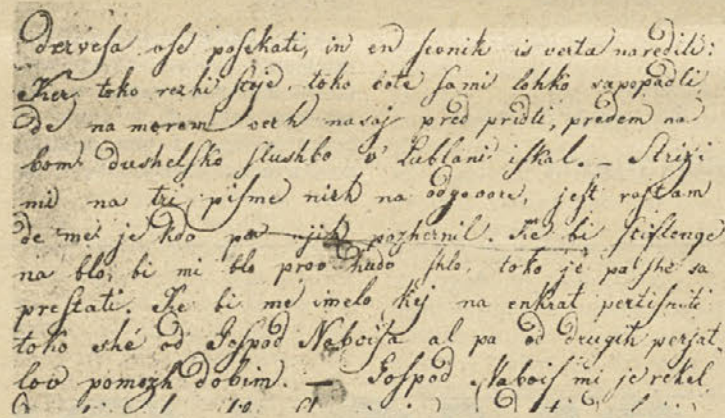 drevesa ose posekati, in en senik is verta naredili:
Ker toko rezhi stoje, toko bote sami lohko sapopadli,
de na morem verh nasaj pred pridti, predem na
bom dushelsko slushbo v Lublani iskal. – Strizi
mi na tri pisme nizh na odgovore, jest vostam
de me je kdo per njih pozhernil. Ke bi stiftenge
na blo, bi mi blo prov hudo shlo, toko je pa she sa
prestati. Ke bi me imelo kej na enkrat pertisniti
toko shé od Gospod Naboisa al pa od drugih perjat,
lov pomozh dobim. – Gospod Nabois mi je rekel